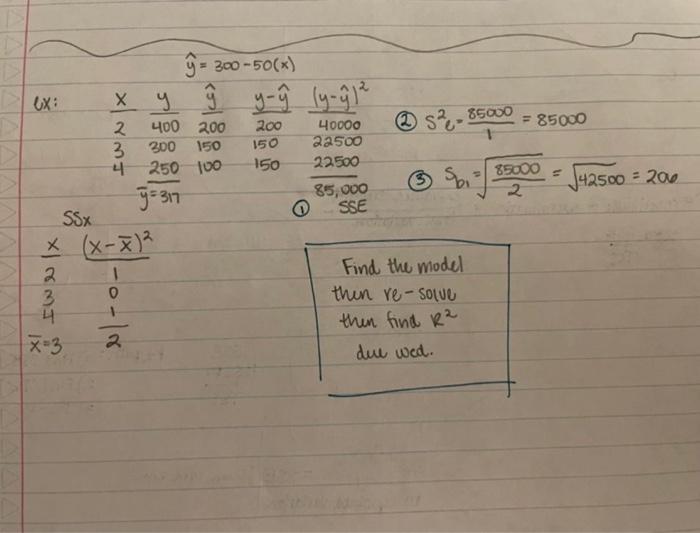 ŷ = 300 - 50(x)
ex:
x y ŷ y-ŷ (y-ŷ)²
2 400 200 200 40000
3 300 150 150 22500
4 250 100 150 22500
ȳ=317 85,000
① SSE
② S²e = 85000/1 = 85000
③ Sb₁ = √(85000/2) = √42500 = 206
SSx
x (x-x̄)²
2 1
3 0
4 1
x̄=3 2
Find the model
then re-solve
then find R²
due wed.